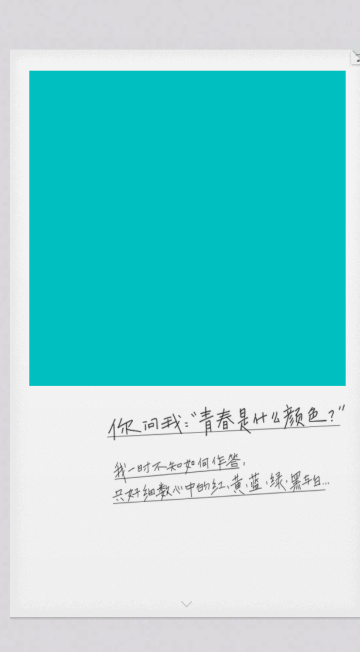 你问我：“青春是什么颜色？”
我一时不知如何作答，
只好细数心中的红、黄、蓝、绿、黑与白…